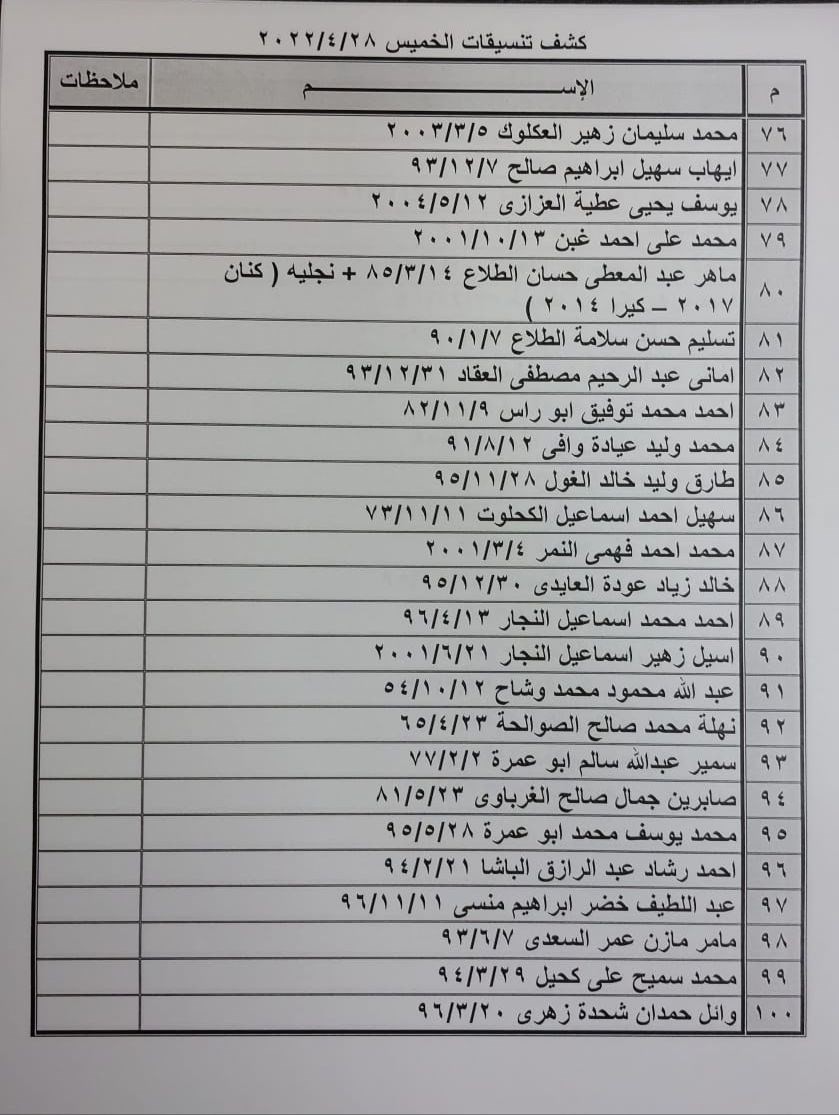 كشف تنسيقات الخميس ٢٠٢٢/٤/٢٨
م الإســـــــــــــــــم ملاحظات
٧٦ محمد سليمان زهير العكلوك ٢٠٠٣/٣/٥
٧٧ ايهاب سهيل ابراهيم صالح ٩٣/١٢/٧
٧٨ يوسف يحيى عطية العزازى ٢٠٠٤/٥/١٢
٧٩ محمد على احمد غبن ٢٠٠١/١٠/١٣
٨٠ ماهر عبد المعطى حسان الطلاع ٨٥/٣/١٤ + نجليه ( كنان
٢٠١٧ – كيرا ٢٠١٤ )
٨١ تسليم حسن سلامة الطلاع ٩٠/١/٧
٨٢ امانى عبد الرحيم مصطفى العقاد ٩٣/١٢/٣١
٨٣ احمد محمد توفيق ابو راس ٨٢/١١/٩
٨٤ محمد وليد عيادة وافى ٩١/٨/١٢
٨٥ طارق وليد خالد الغول ٩٥/١١/٢٨
٨٦ سهيل احمد اسماعيل الكحلوت ٧٣/١١/١١
٨٧ محمد احمد فهمى النمر ٢٠٠١/٣/٤
٨٨ خالد زياد عودة العايدى ٩٥/١٢/٣٠
٨٩ احمد محمد اسماعيل النجار ٩٦/٤/١٣
٩٠ اسيل زهير اسماعيل النجار ٢٠٠١/٦/٢١
٩١ عبد الله محمود محمد وشاح ٥٤/١٠/١٢
٩٢ نهلة محمد صالح الصوالحة ٦٥/٤/٢٣
٩٣ سمير عبدالله سالم ابو عمرة ٧٧/٢/٢
٩٤ صابرين جمال صالح الغرباوى ٨١/٥/٢٣
٩٥ محمد يوسف محمد ابو عمرة ٩٥/٥/٢٨
٩٦ احمد رشاد عبد الرازق الباشا ٩٤/٢/٢١
٩٧ عبد اللطيف خضر ابراهيم منسى ٩٦/١١/١١
٩٨ مامر مازن عمر السعدى ٩٣/٦/٧
٩٩ محمد سميح على كحيل ٩٤/٣/٢٩
١٠٠ وائل حمدان شحدة زهرى ٩٦/٣/٢٠